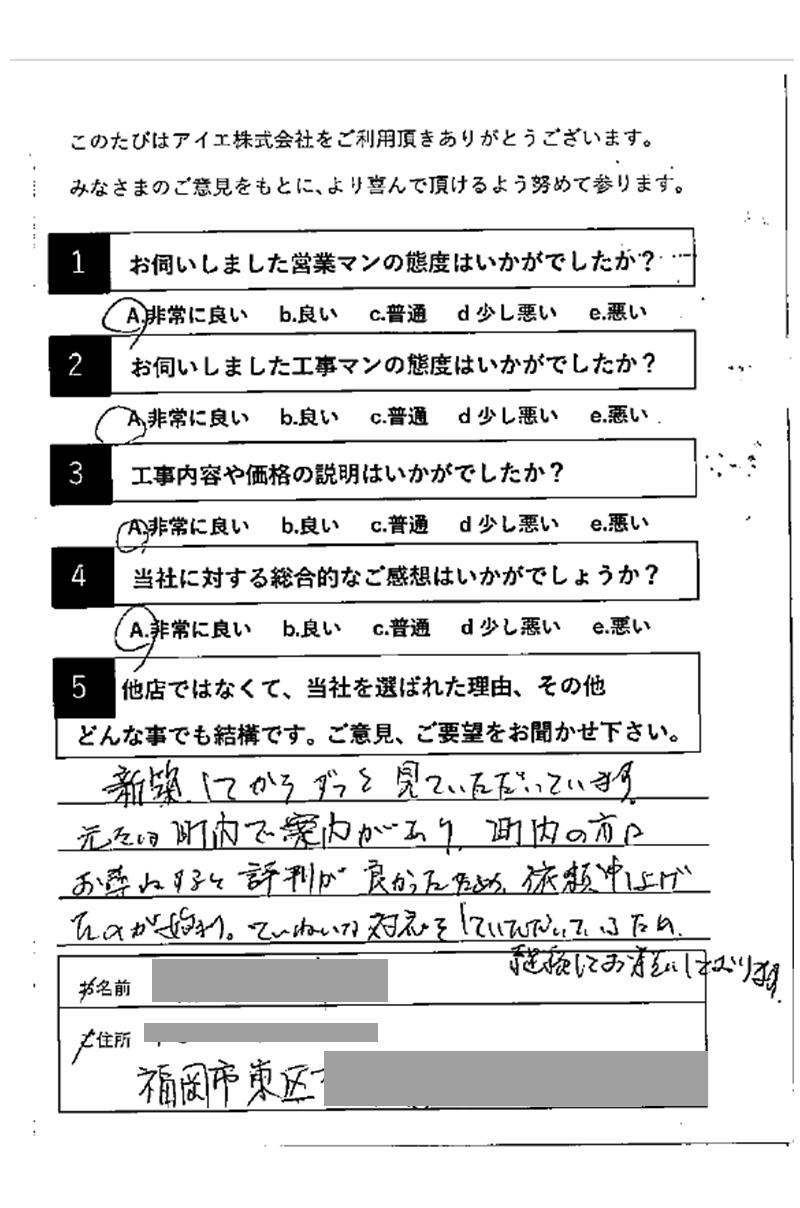 このたびはアイエ株式会社をご利用頂きありがとうございます。
みなさまのご意見をもとに、より喜んで頂けるよう努めて参ります。
1 お伺いしました営業マンの態度はいかがでしたか？
A.非常に良い b.良い c.普通 d 少し悪い e.悪い
2 お伺いしました工事マンの態度はいかがでしたか？
A.非常に良い b.良い c.普通 d 少し悪い e.悪い
3 工事内容や価格の説明はいかがでしたか？
A.非常に良い b.良い c.普通 d 少し悪い e.悪い
4 当社に対する総合的なご感想はいかがでしょうか？
A.非常に良い b.良い c.普通 d 少し悪い e.悪い
5 他店ではなくて、当社を選ばれた理由、その他
どんな事でも結構です。ご意見、ご要望をお聞かせ下さい。
新築してからずっと見ていただいています。
元々は町内で案内があり、町内の方に
お尋ねすると評判が良かったため、依頼申上げ
たのが始り。ていねいな対応をしていただいているため、
継続してお願いしております。
お名前
ご住所
福岡市東区